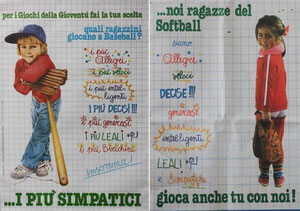 per i Giochi della Gioventù fai la tua scelta
quali ragazzini
giocano a Baseball?
i più
Allegri
i più veloci
i più intel-
ligenti
I PIÙ DECISI !!!
i più generosi
I PIÙ LEALI
i più Birichini
insomma!
...I PIÙ SIMPATICI
...noi ragazze del
Softball
siamo
Allegre
veloci
DECISE !!!
generose
intelligenti
LEALI
e Simpatiche
gioca anche tu con noi !